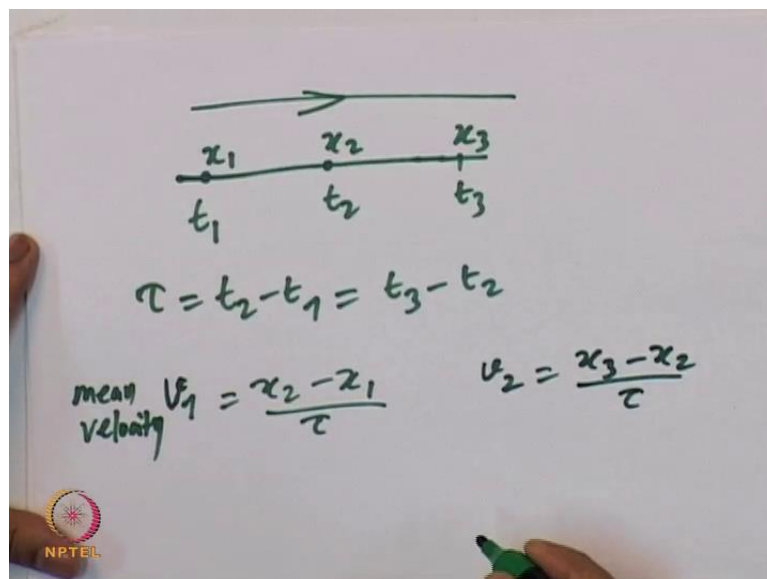 x₁ x₂ x₃
t₁ t₂ t₃
τ = t₂ - t₁ = t₃ - t₂
mean velocity v₁ = x₂ - x₁ / τ
v₂ = x₃ - x₂ / τ
NPTEL